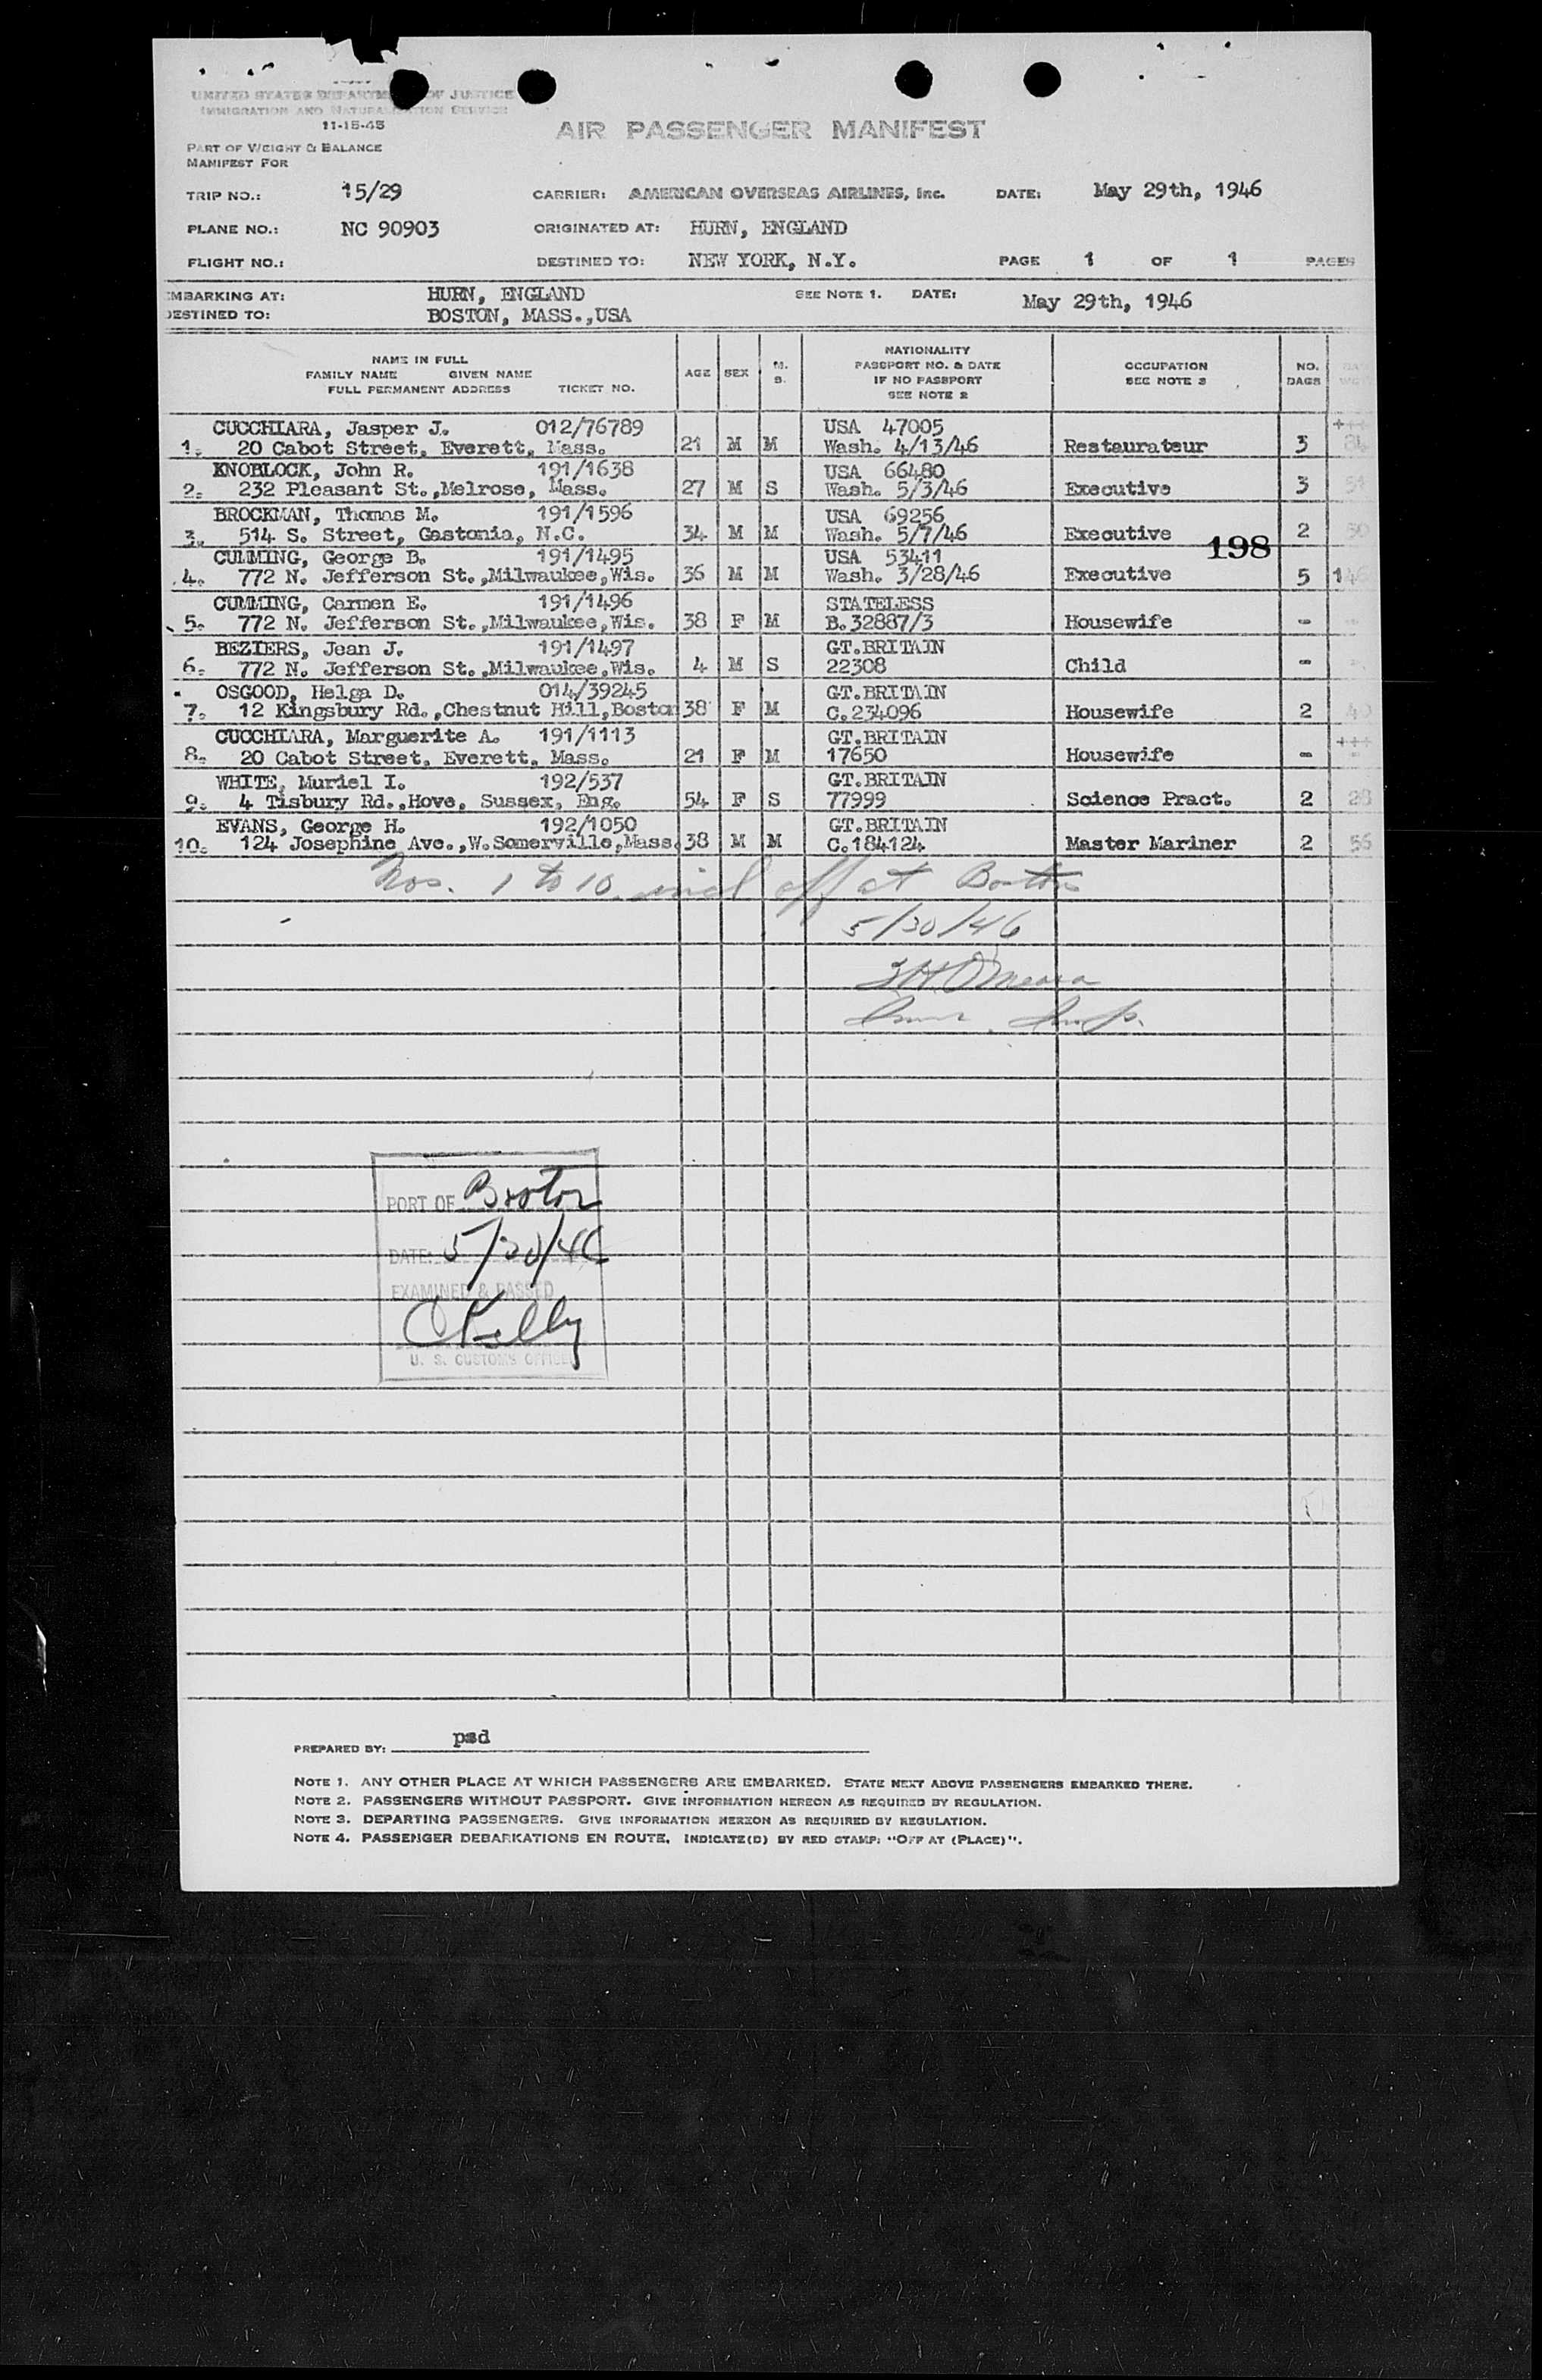 UNITED STATES DEPARTM OF JUSTICE
IMMIGRATION AND NATURALIZATION SERVICE
11-15-45
AIR PASSENGER MANIFEST
PART OF WEIGHT & BALANCE
MANIFEST FOR
TRIP NO.: 15/29 CARRIER: AMERICAN OVERSEAS AIRLINES, Inc. DATE: May 29th, 1946
PLANE NO.: NC 90903 ORIGINATED AT: HURN, ENGLAND
FLIGHT NO.: DESTINED TO: NEW YORK, N.Y. PAGE 1 OF 1 PAGES
EMBARKING AT: HURN, ENGLAND SEE NOTE 1. DATE: May 29th, 1946
DESTINED TO: BOSTON, MASS.,USA
NAME IN FULL
FAMILY NAME GIVEN NAME
FULL PERMANENT ADDRESS TICKET NO.
AGE SEX M. S.
NATIONALITY
PASSPORT NO. & DATE
IF NO PASSPORT
SEE NOTE 2
OCCUPATION
SEE NOTE 3
NO.
BAGS
CUCCHIARA, Jasper J. 012/76789 USA 47005 +++
1. 20 Cabot Street, Everett, Mass. 21 M M Wash. 4/13/46 Restaurateur 3 84
KNOBLOCK, John R. 191/1638 USA 66480
2. 232 Pleasant St.,Melrose, Mass. 27 M S Wash. 5/3/46 Executive 3 51
BROCKMAN, Thomas M. 191/1596 USA 69256
3. 514 S. Street, Gastonia, N.C. 34 M M Wash. 5/7/46 Executive 2 50
198
CUMMING, George B. 191/1495 USA 53411
4. 772 N. Jefferson St.,Milwaukee,Wis. 36 M M Wash. 3/28/46 Executive 5 146
CUMMING, Carmen E. 191/1496 STATELESS
5. 772 N. Jefferson St.,Milwaukee,Wis. 38 F M B.32887/3 Housewife - -
BEZIERS, Jean J. 191/1497 GT.BRITAIN
6. 772 N. Jefferson St.,Milwaukee,Wis. 4 M S 22308 Child - -
OSGOOD, Helga D. 014/39245 GT.BRITAIN
7. 12 Kingsbury Rd.,Chestnut Hill,Boston 38 F M C.234096 Housewife 2 40
CUCCHIARA, Marguerite A. 191/1113 GT.BRITAIN +++
8. 20 Cabot Street, Everett, Mass. 21 F M 17650 Housewife - -
WHITE, Muriel I. 192/537 GT.BRITAIN
9. 4 Tisbury Rd.,Hove, Sussex, Eng. 54 F S 77999 Science Pract. 2 28
EVANS, George H. 192/1050 GT.BRITAIN
10. 124 Josephine Ave.,W.Somerville,Mass. 38 M M C.184124 Master Mariner 2 56
Nos. 1 to 10 incl off at Boston
5/30/46
O'Meara
Imm. Insp.
PORT OF Boston
DATE: 5/30/46
EXAMINED & PASSED
Kelly
U. S. CUSTOMS OFFICE
PREPARED BY: psd
NOTE 1. ANY OTHER PLACE AT WHICH PASSENGERS ARE EMBARKED. STATE NEXT ABOVE PASSENGERS EMBARKED THERE.
NOTE 2. PASSENGERS WITHOUT PASSPORT. GIVE INFORMATION HEREON AS REQUIRED BY REGULATION.
NOTE 3. DEPARTING PASSENGERS. GIVE INFORMATION HEREON AS REQUIRED BY REGULATION.
NOTE 4. PASSENGER DEBARKATIONS EN ROUTE, INDICATE(D) BY RED STAMP: "OFF AT (PLACE)".